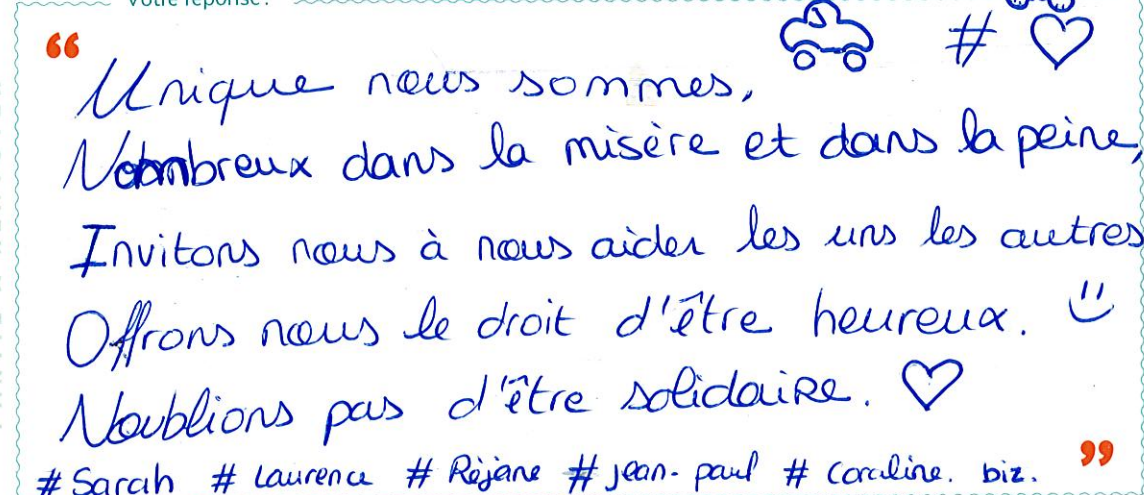 Votre réponse :
“
# ♡
Unique nous sommes,
Nombreux dans la misère et dans la peine,
Invitons nous à nous aider les uns les autres
Offrons nous le droit d'être heureux.
Noublions pas d'être solidaire. ♡
# Sarah # Laurence # Réjane # jean-paul # Coraline. biz.
”